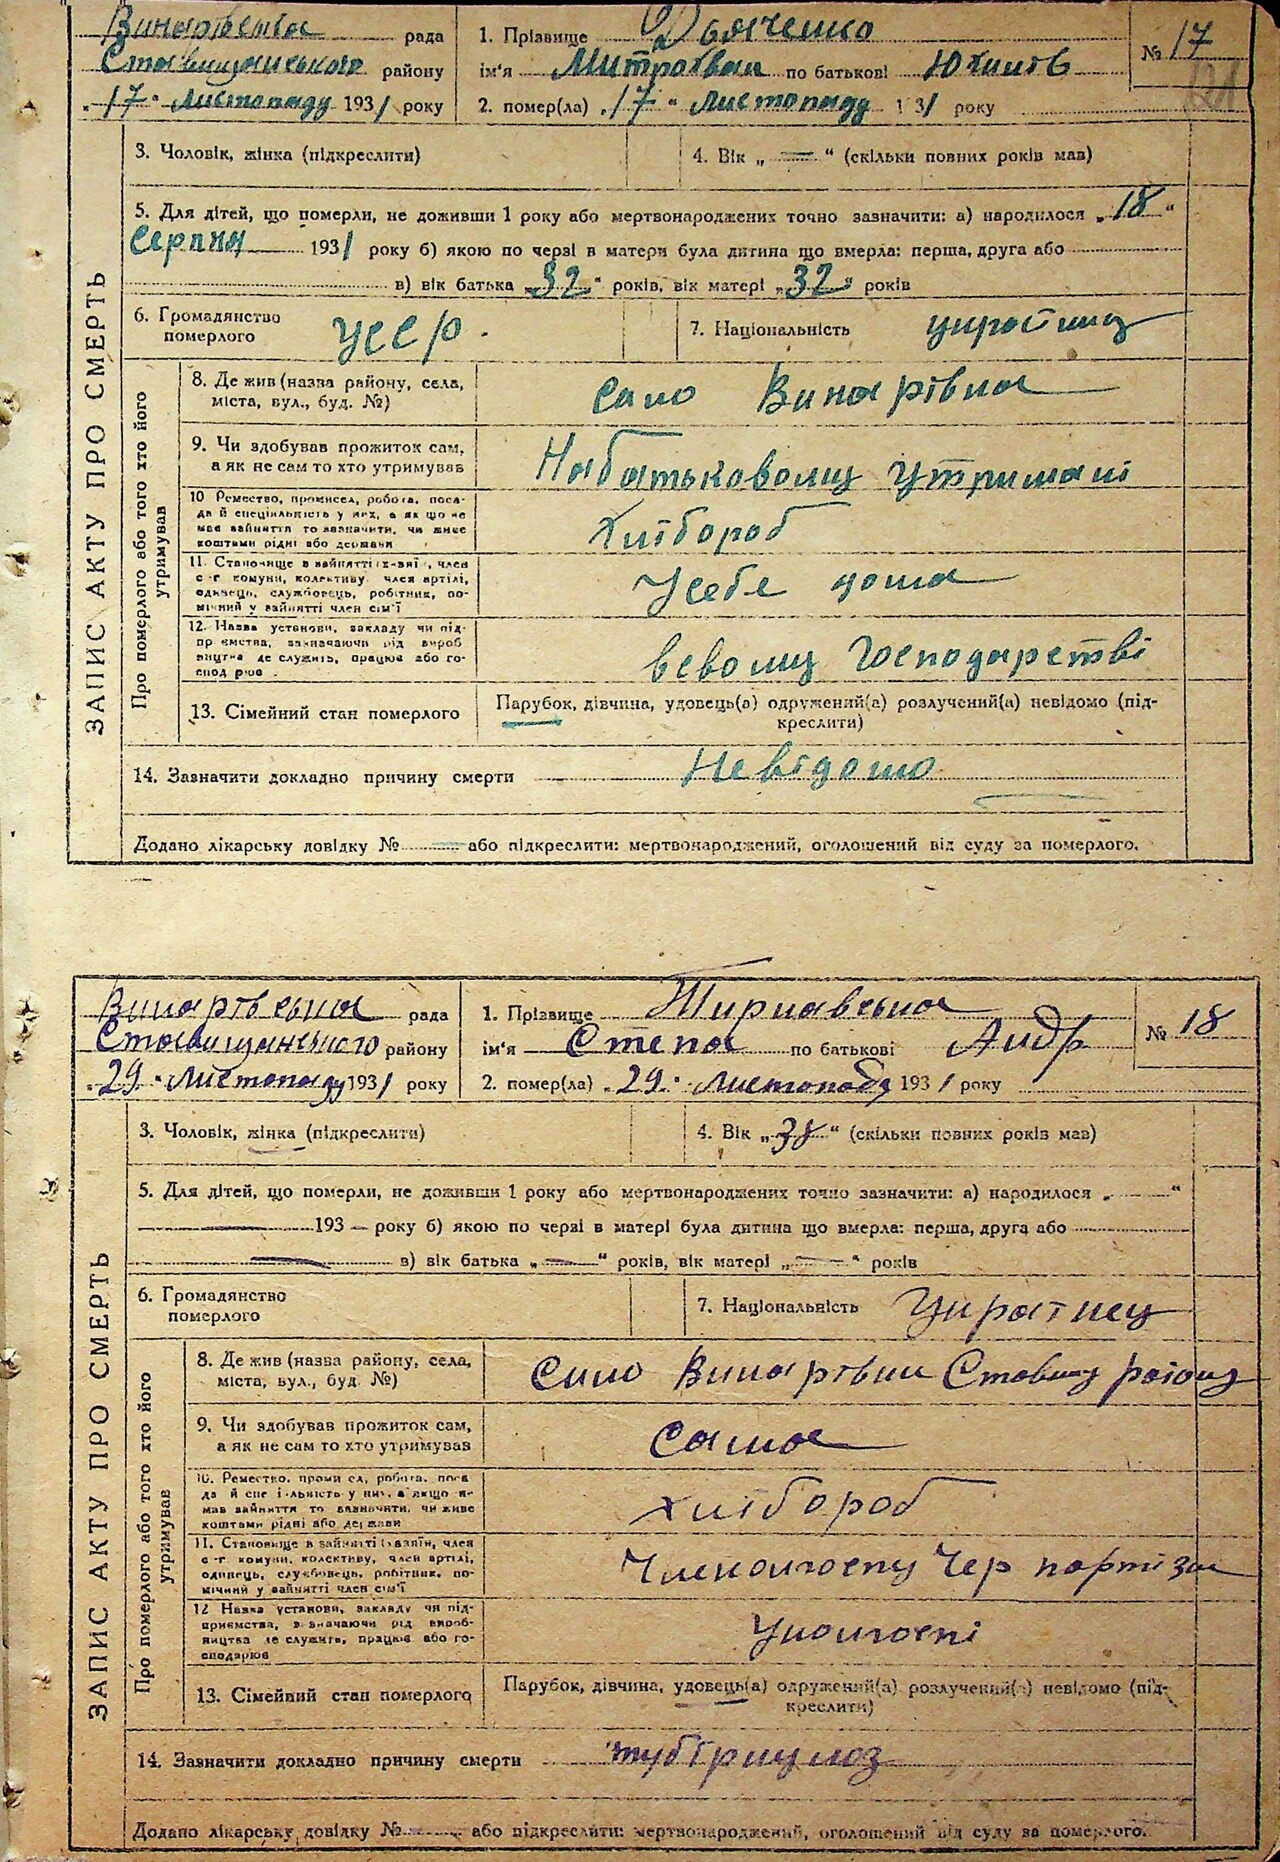 Винарівська рада
Ставищанського району
„17“ Листопаду 1931 року
1. Прізвище Дяченко
ім'я Митрофан по батькові Юхимів
2. помер(ла) „17“ Листопаду 1931 року
№ 17
ЗАПИС АКТУ ПРО СМЕРТЬ
3. Чоловік, жінка (підкреслити)
4. Вік „ — “ (скільки повних років мав)
5. Для дітей, що померли, не доживши 1 року або мертвонароджених точно зазначити: а) народилося „18“
Серпня 1931 року б) якою по черзі в матери була дитина що вмерла: перша, друга або
в) вік батька „32“ років, вік матері „32“ років
6. Громадянство
померлого
УССР.
7. Національність українц
Про померлого або того хто його
утримував
8. Де жив (назва району, села,
міста, вул., буд. №)
село Винарівка
9. Чи здобував прожиток сам,
а як не сам то хто утримував
На батьковому утримані
10 Ремество, промисел, робота, поса-
да й спеціяльність у них, а як що не
має зайняття то зазначити, чи живе
коштами рідні або держави
Хлібороб
11. Становище в зайнятті хазяї, член
с-г комуни, колективу, член артілі,
одинець, службовець, робітник, по-
мічний у зайнятті член сім'ї
У себе дома
12. Назва установи, закладу чи під-
приємства, зазначаючи рід вироб
ництва де служить, працює або го-
сподарює
всвому Господарстві
13. Сімейний стан померлого
Парубок, дівчина, удовець(а) одружений(а) розлучений(а) невідомо (під-
креслити)
14. Зазначити докладно причину смерти Невідомо
Додано лікарську довідку № — або підкреслити: мертвонароджений, оголошений від суду за померлого.
Винарівська рада
Ставищанського району
„29“ Листопаду 1931 року
1. Прізвище Тирнавська
ім'я Степа по батькові Андр
2. помер(ла) „29“ Листопаду 1931 року
№ 18
ЗАПИС АКТУ ПРО СМЕРТЬ
3. Чоловік, жінка (підкреслити)
4. Вік „38“ (скільки повних років мав)
5. Для дітей, що померли, не доживши 1 року або мертвонароджених точно зазначити: а) народилося „ — “
— 193 — року б) якою по черзі в матері була дитина що вмерла: перша, друга або
— в) вік батька „ — “ років, вік матері „ — “ років
6. Громадянство
померлого
7. Національність Українец
Про померлого або того хто його
утримував
8. Де жив (назва району, села,
міста, вул., буд №)
село Винарівки Ставищ району
9. Чи здобував прожиток сам,
а як не сам то хто утримував
сама
10. Ремество, промисел, робота, поса
да й спеціяльність у них, а якщо н-
має зайняття то зазначити, чи живе
коштами рідні або держави
хлібороб
11. Становище в зайнятті хазяїн, член
с-г. комуни, колективу, член артілі,
одинець, службовець, робітник, по-
мічний у зайнятті член сім'ї
Член колгоспу Чер партізан
12 Назва установи, закладу чи під-
приємства, зазначаючи рід вироб-
ництва де служить, працює або го-
сподарює
У колгоспі
13. Сімейний стан померлого
Парубок, дівчина, удовець(а) одружений(а) розлучений(а) невідомо (під-
креслити)
14. Зазначити докладно причину смерти тубіркулоз
Додано лікарську довідку № — або підкреслити: мертвонароджений, оголошений від суду за померлого.